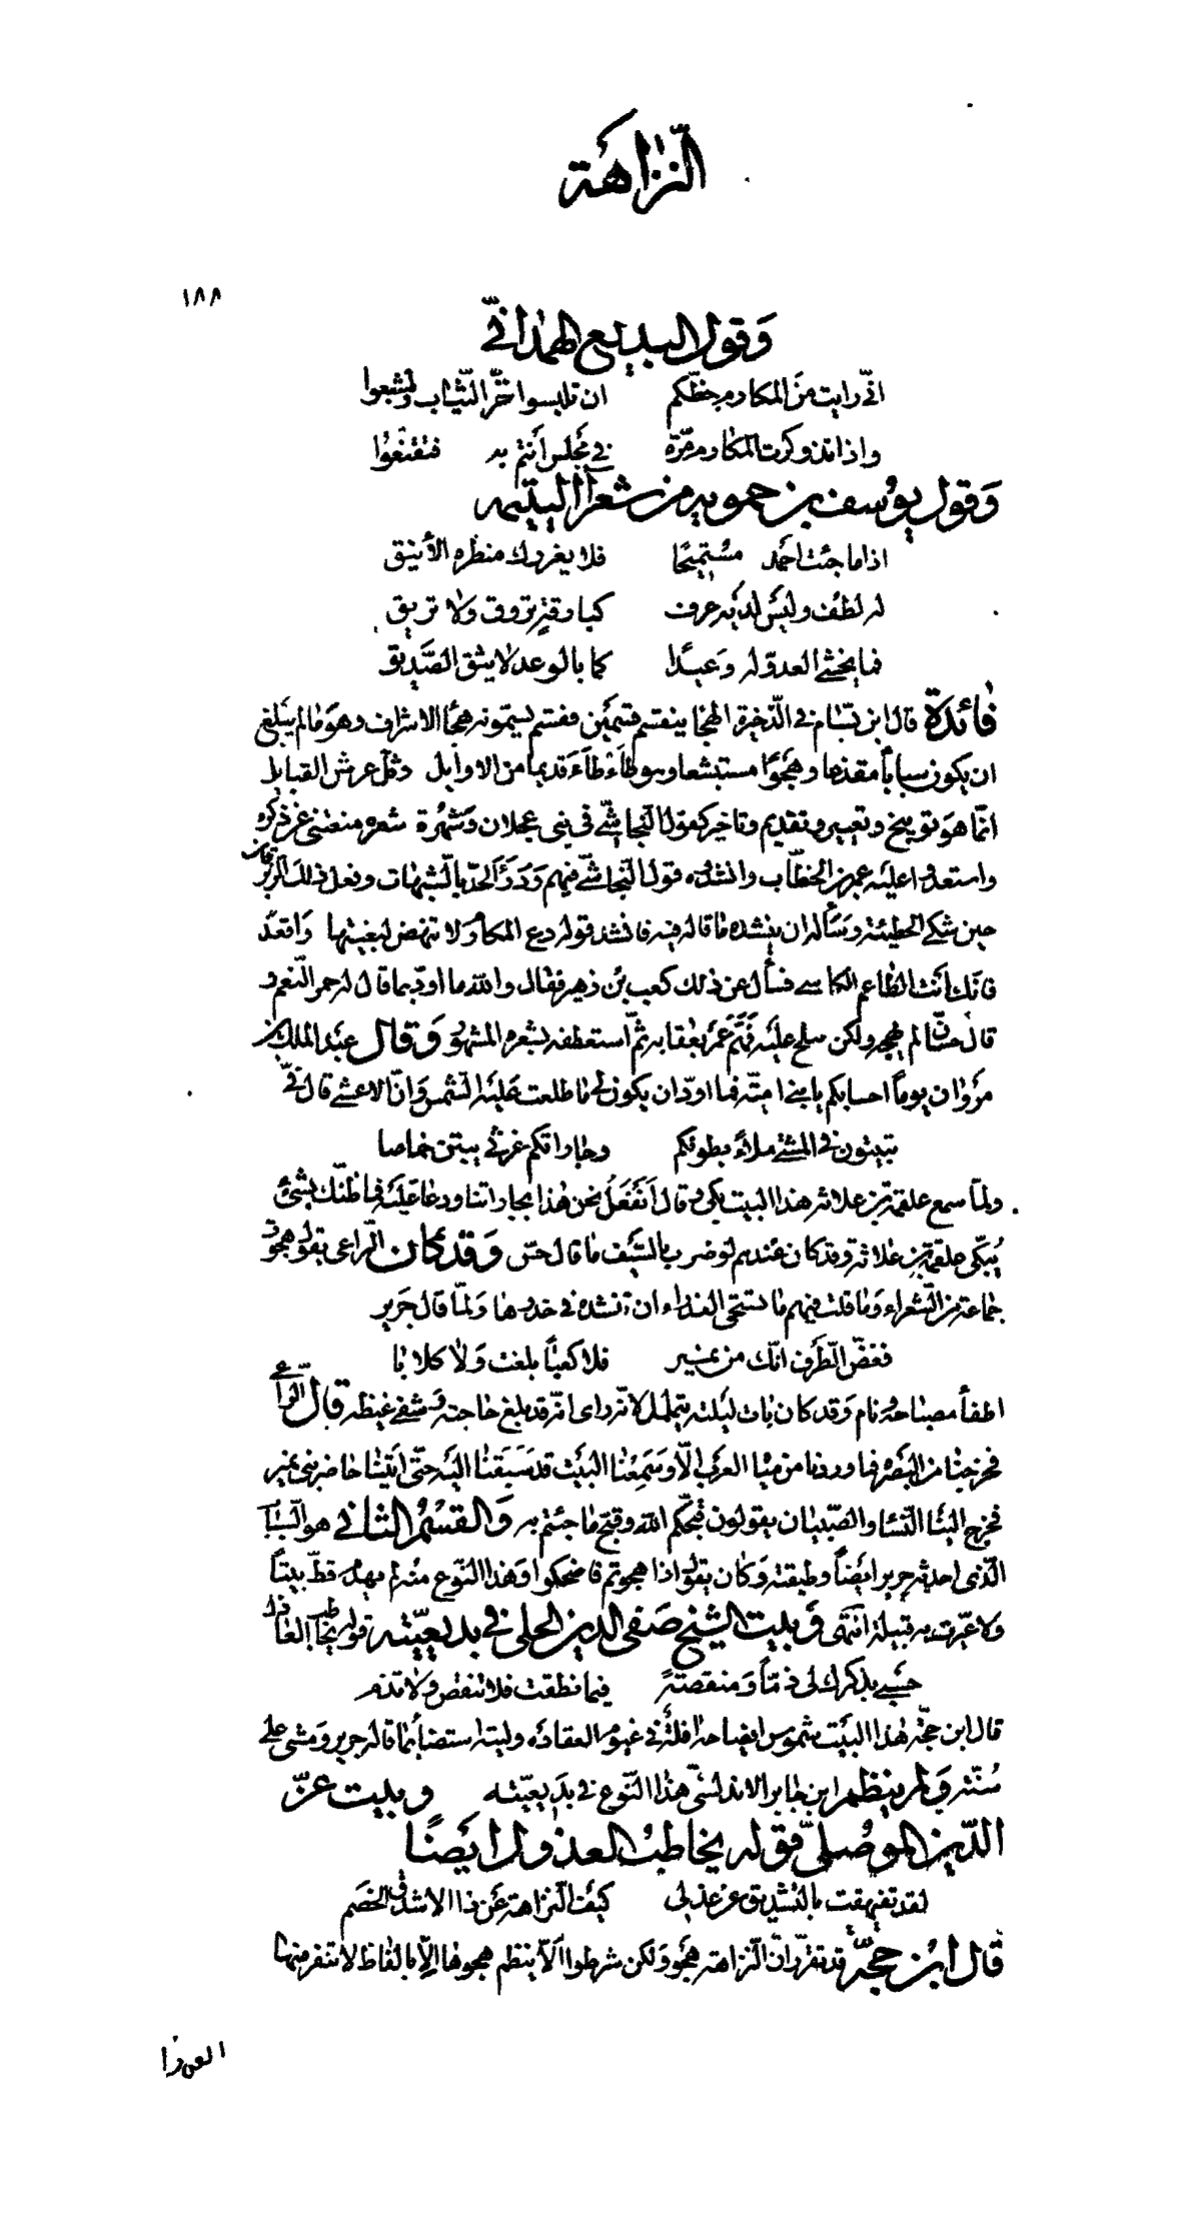 النزاهة
١٨٨
وقول البديع الهمذاني
اني رايت من المكارم حظكم ان تلبسوا خز الثياب وتشبعوا
واذا تذوكرت المكارم مرة في مجلس أنتم به فتقنعوا
وقول يوسف بن حمويه من شعرآء اليتيمه
اذا ما جئت احمد مستميحا فلا يغررك منظره الأنيق
له لطف وليس لديه عرف كبارقة تروق ولا تريق
فما يخشى العدو له وعيدا كما بالوعد لا يثق الصديق
فائدة قال ابن بسام في الذخيرة الهجا ينقسم قسمين فقسم يسمونه هجا الاشراف وهو ما لم يبلغ
ان يكون سبابا مقذعا وهجوا مستبشعا وهو طأطأ قديما من الاوايل وثل عرش القبايل
انما هو توبيخ وتعيير وتقديم وتاخير كقول النجاشي في بني عجلان وشهرة شعره منعتني عن ذكره
واستعدوا عليه عمر بن الخطاب وانشدوه قول النجاشي فيهم ودرء الحد بالشبهات وفعل ذلك الزبرقان
حين شكى الحطيئة وسأله ان ينشده ما قاله فيه فانشد قوله دع المكارم لا تنهض لبغيتها واقعد
فانك أنت الطاعم الكاسي فسأل عن ذلك كعب بن زهير فقال والله ما اود بما قال له حمر النعم و
قال حسان لم يهجه ولكن سلح عليه فهم عمر بعقابه ثم استعطفه بشعره المشهور وقال عبد الملك بن
مروان يوما احسابكم يا بني امية فما اود ان يكون لي ما طلعت عليه الشمس وان الاعشى قال في
تبيتون في المشتى ملاء بطونكم وجاراتكم غرثى يبتن خماصا
ولما سمع علقمة بن علاثه هذا البيت بكى وقال أنفعل نحن هذا بجاراتنا ودعا عليه فما ظنك بشئ
يبكي علقمة بن علاثة وقد كان عندهم لو ضرب بالسيف ما قال حس وقد كان الراعي يقول هجوت
جماعة من الشعراء وما قلت فيهم ما تستحي العذراء ان تنشده في خدرها ولما قال جرير
فغض الطرف انك من نمير فلا كعبا بلغت ولا كلابا
اطفأ مصباحه ونام وقد كان بات ليلته يتململ لانه راى انه قد بلغ حاجته وشفى غيظه قال الراعي
فخرجنا من البصره فما وردنا من مياه العرب الا وسمعنا البيت قد سبقنا اليه حتى اتينا حاضر بني نمير
فخرج الينا النسا والصبيان يقولون قبحكم الله وقبح ما جئتم به والقسم الثاني هو السباب
الذي احدثه جرير ايضا وطبقته وكان يقول اذا هجوتم فاضحكوا وهذا النوع منه لم يهدم قط بيتا
ولا عيرت به قبيلة انتهى وبيت الشيخ صفي الدين الحلي في بديعيته قوله يخاطب العاذل
حسبي بذكرك لي ذما ومنقصة فيما نطقت فلا تنقص ولا تذم
قال ابن حجه هذا البيت شموس ايضاحه افلة في غيوم العقاده وليته استضاء بما قاله جرير ومشى على
سننه ولم ينظم ابن جابر الاندلسي هذا النوع في بديعيته وبيت عز
الدين الموصلي قوله يخاطب العذول ايضا
لقد تفيهقت بالتشديق عن عذلي كيف النزاهة عن ذا الاشدق الخصم
قال ابن حجة قد تقرر ان النزاهة هجو ولكن شرطوا ألا ينظم هجوها الا بالفاظ لا تنفر منها
العذرا